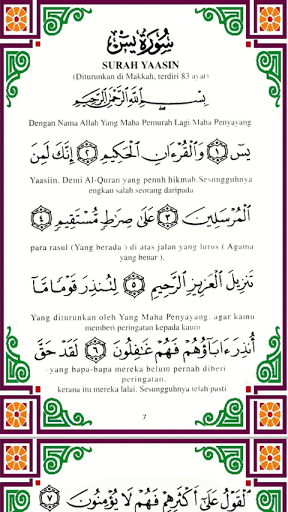 سُورَةُ يسٓ
SURAH YAASIN
(Diturunkan di Makkah, terdiri 83 ayat)
بِسْمِ اللَّهِ الرَّحْمَٰنِ الرَّحِيمِ
Dengan Nama Allah Yang Maha Pemurah Lagi Maha Penyayang
يسٓ ﴿١﴾ وَالْقُرْءَانِ الْحَكِيمِ ﴿٢﴾ إِنَّكَ لَمِنَ
Yaasiin. Demi Al-Quran yang penuh hikmah.Sesungguhnya
engkau salah seorang daripada
الْمُرْسَلِينَ ﴿٣﴾ عَلَىٰ صِرَٰطٍ مُّسْتَقِيمٍ ﴿٤﴾
para rasul (Yang berada ) di atas jalan yang lurus ( Agama
yang benar ).
تَنزِيلَ الْعَزِيزِ الرَّحِيمِ ﴿٥﴾ لِتُنذِرَ قَوْمًا مَّا
Yang diturunkan oleh Yang Maha Penyayang. agar kamu
memberi peringatan kepada kaum
أُنذِرَ ءَابَآؤُهُمْ فَهُمْ غَٰفِلُونَ ﴿٦﴾ لَقَدْ حَقَّ
yang bapa-bapa mereka belum pernah diberi
peringatan.
kerana itu mereka lalai. Sesungguhnya telah pasti
7
الْقَوْلُ عَلَىٰٓ أَكْثَرِهِمْ فَهُمْ لَا يُؤْمِنُونَ ﴿٧﴾